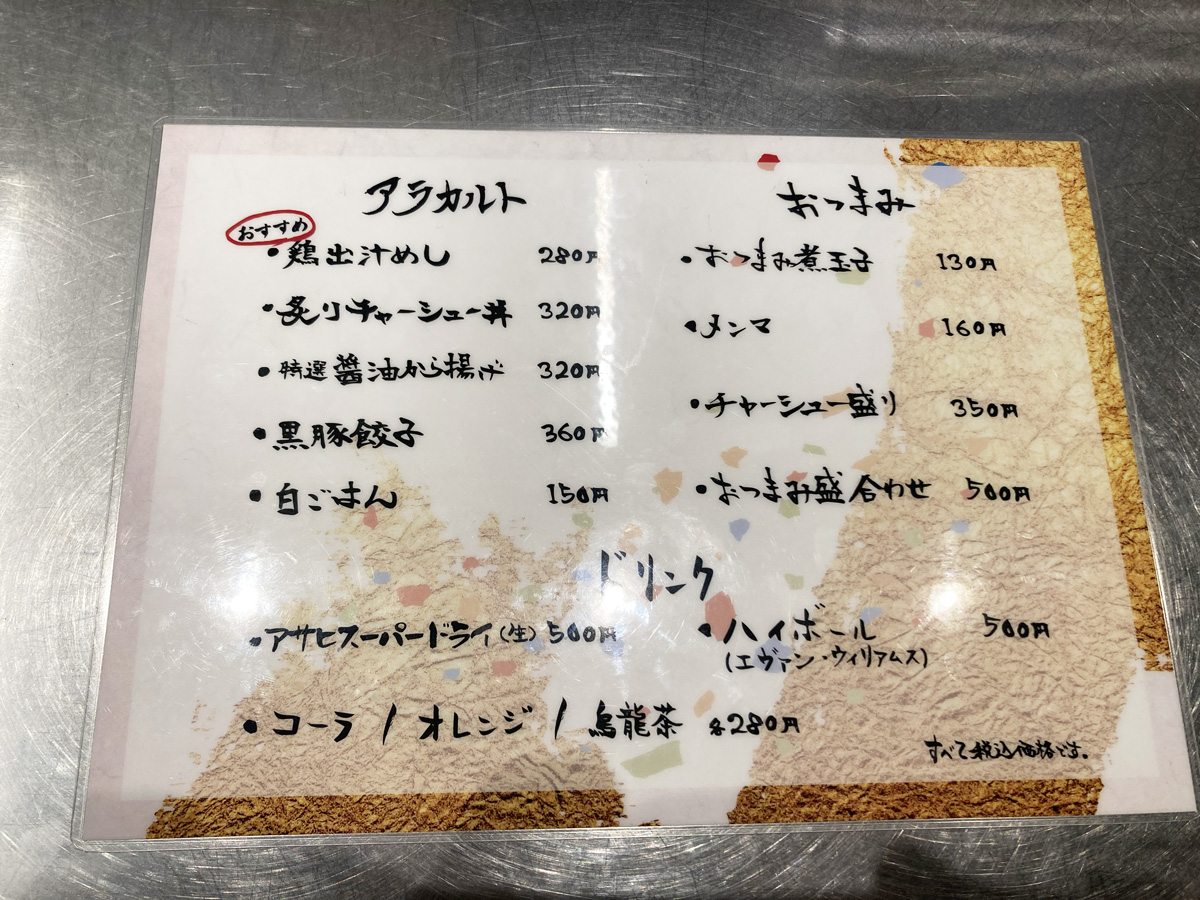 アラカルト
おすすめ
・鶏出汁めし 280円
・炙りチャーシュー丼 320円
・特選醤油から揚げ 320円
・黒豚餃子 360円
・白ごはん 150円
おつまみ
・おつまみ煮玉子 130円
・メンマ 160円
・チャーシュー盛り 350円
・おつまみ盛合わせ 500円
ドリンク
・アサヒスーパードライ(生) 500円
・ハイボール 500円
(エヴァン・ウィリアムス)
・コーラ / オレンジ / 烏龍茶 各280円
すべて税込価格です。